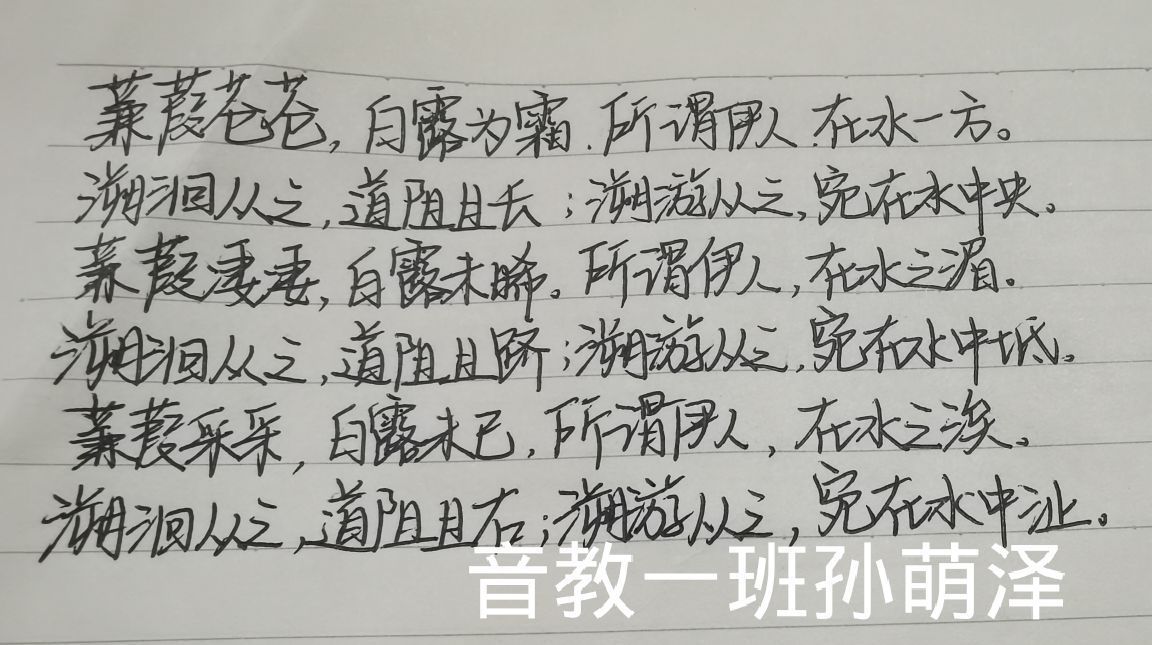 蒹葭苍苍，白露为霜．所谓伊人．在水一方。
溯洄从之，道阻且长；溯游从之，宛在水中央。
蒹葭凄凄，白露未晞。所谓伊人，在水之湄。
溯洄从之，道阻且跻；溯游从之，宛在水中坻。
蒹葭采采，白露未已．所谓伊人，在水之涘。
溯洄从之，道阻且右；溯游从之，宛在水中沚。
音教一班孙萌泽